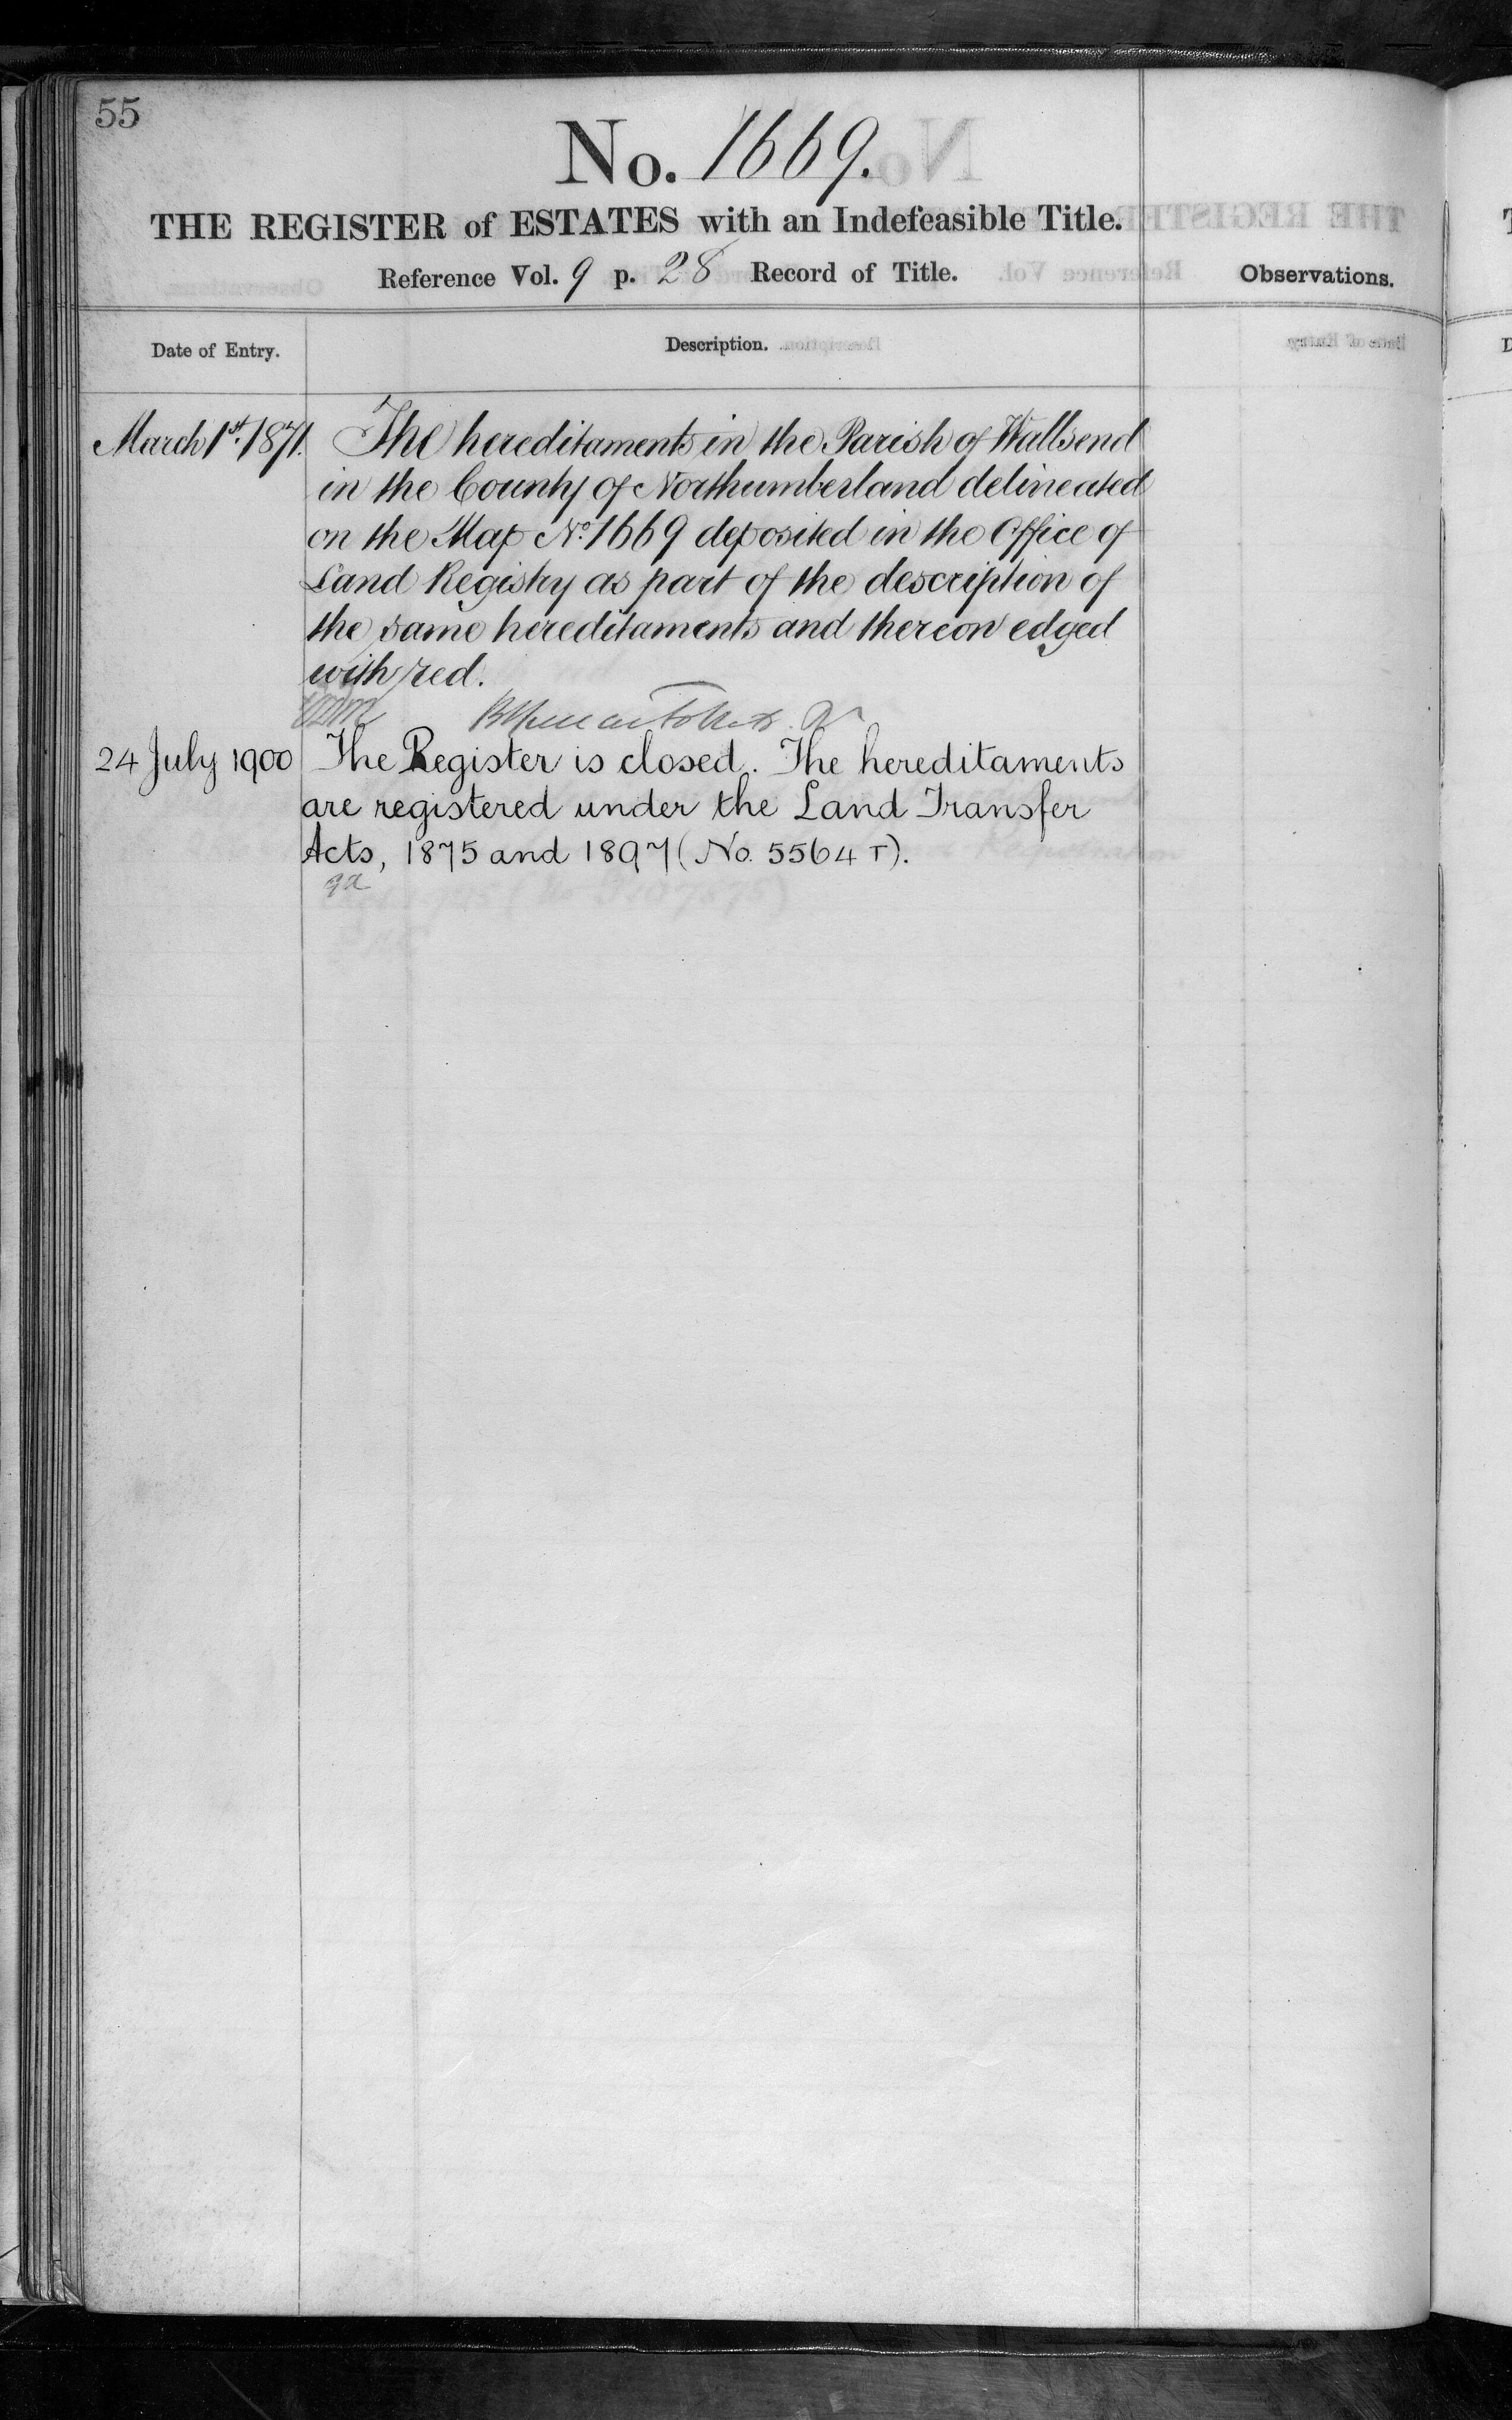 55
No. 1669.
THE REGISTER of ESTATES with an Indefeasible Title.
Reference Vol. 9 p. 28 Record of Title.
Observations.
Date of Entry.
Description.
March 1st. 1871. The hereditaments in the Parish of Wallsend
in the County of Northumberland delineated
on the Map No. 1669 deposited in the Office of
Land Registry as part of the description of
the same hereditaments and thereon edged
with red.
24 July 1900 The Register is closed. The hereditaments
are registered under the Land Transfer
Acts, 1875 and 1897 (No. 5564 T).